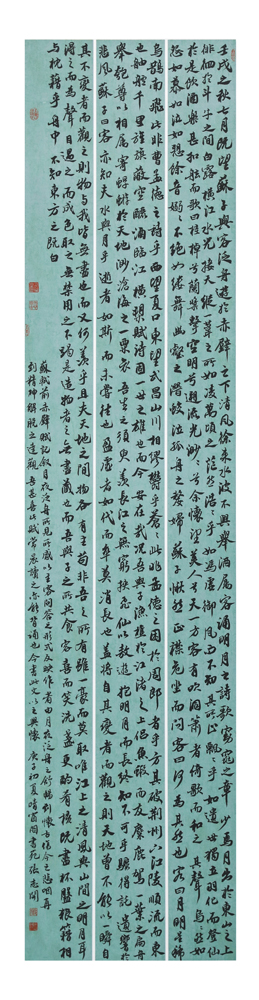 壬戌之秋七月既望蘇子與客泛舟遊於赤壁之下清風徐來水波不興舉酒屬客誦明月之詩歌窈窕之章少焉月出於東山之上
徘徊於斗牛之間白露橫江水光接天縱一葦之所如凌萬頃之茫然浩浩乎如馮虛御風而不知其所止飄飄乎如遺世獨立羽化而登仙
於是飲酒樂甚扣舷而歌之歌曰桂棹兮蘭槳擊空明兮溯流光渺渺兮余懷望美人兮天一方客有吹洞簫者倚歌而和之其聲嗚嗚然如
怨如慕如泣如訴餘音嫋嫋不絕如縷舞幽壑之潛蛟泣孤舟之嫠婦蘇子愀然正襟危坐而問客曰何為其然也客曰月明星稀
烏鵲南飛此非曹孟德之詩乎西望夏口東望武昌山川相繆鬱乎蒼蒼此非孟德之困於周郎者乎方其破荊州下江陵順流而東
也舳艫千里旌旗蔽空釃酒臨江橫槊賦詩固一世之雄也而今安在哉況吾與子漁樵於江渚之上侶魚蝦而友麋鹿駕一葉之扁舟
舉匏尊以相屬寄蜉蝣於天地渺滄海之一粟哀吾生之須臾羨長江之無窮挾飛仙以遨遊抱明月而長終知不可乎驟得託遺響於
悲風蘇子曰客亦知夫水與月乎逝者如斯而未嘗往也盈虛者如代而卒莫消長也蓋將自其變者而觀之則天地曾不能以一瞬自
其不變者而觀之則物與我皆無盡也而又何羨乎且夫天地之間物各有主苟非吾之所有雖一毫而莫取唯江上之清風與山間之明月耳
得之而為聲目遇之而成色取之無禁用之不竭是造物者之無盡藏也而吾與子之所共食客喜而笑洗盞更酌肴核既盡杯盤狼籍相
與枕藉乎舟中不知東方之既白
蘇軾前赤壁賦記敘月夜泛舟所見所感以主客問答之形式反映作者由月夜泛舟之舒暢到懷古傷今之悲咽再
到精神解脫之達觀吾甚喜此賦常展讀之亦能背誦也今書此文以之興懷庚子初夏晴窗閣書苑張志開